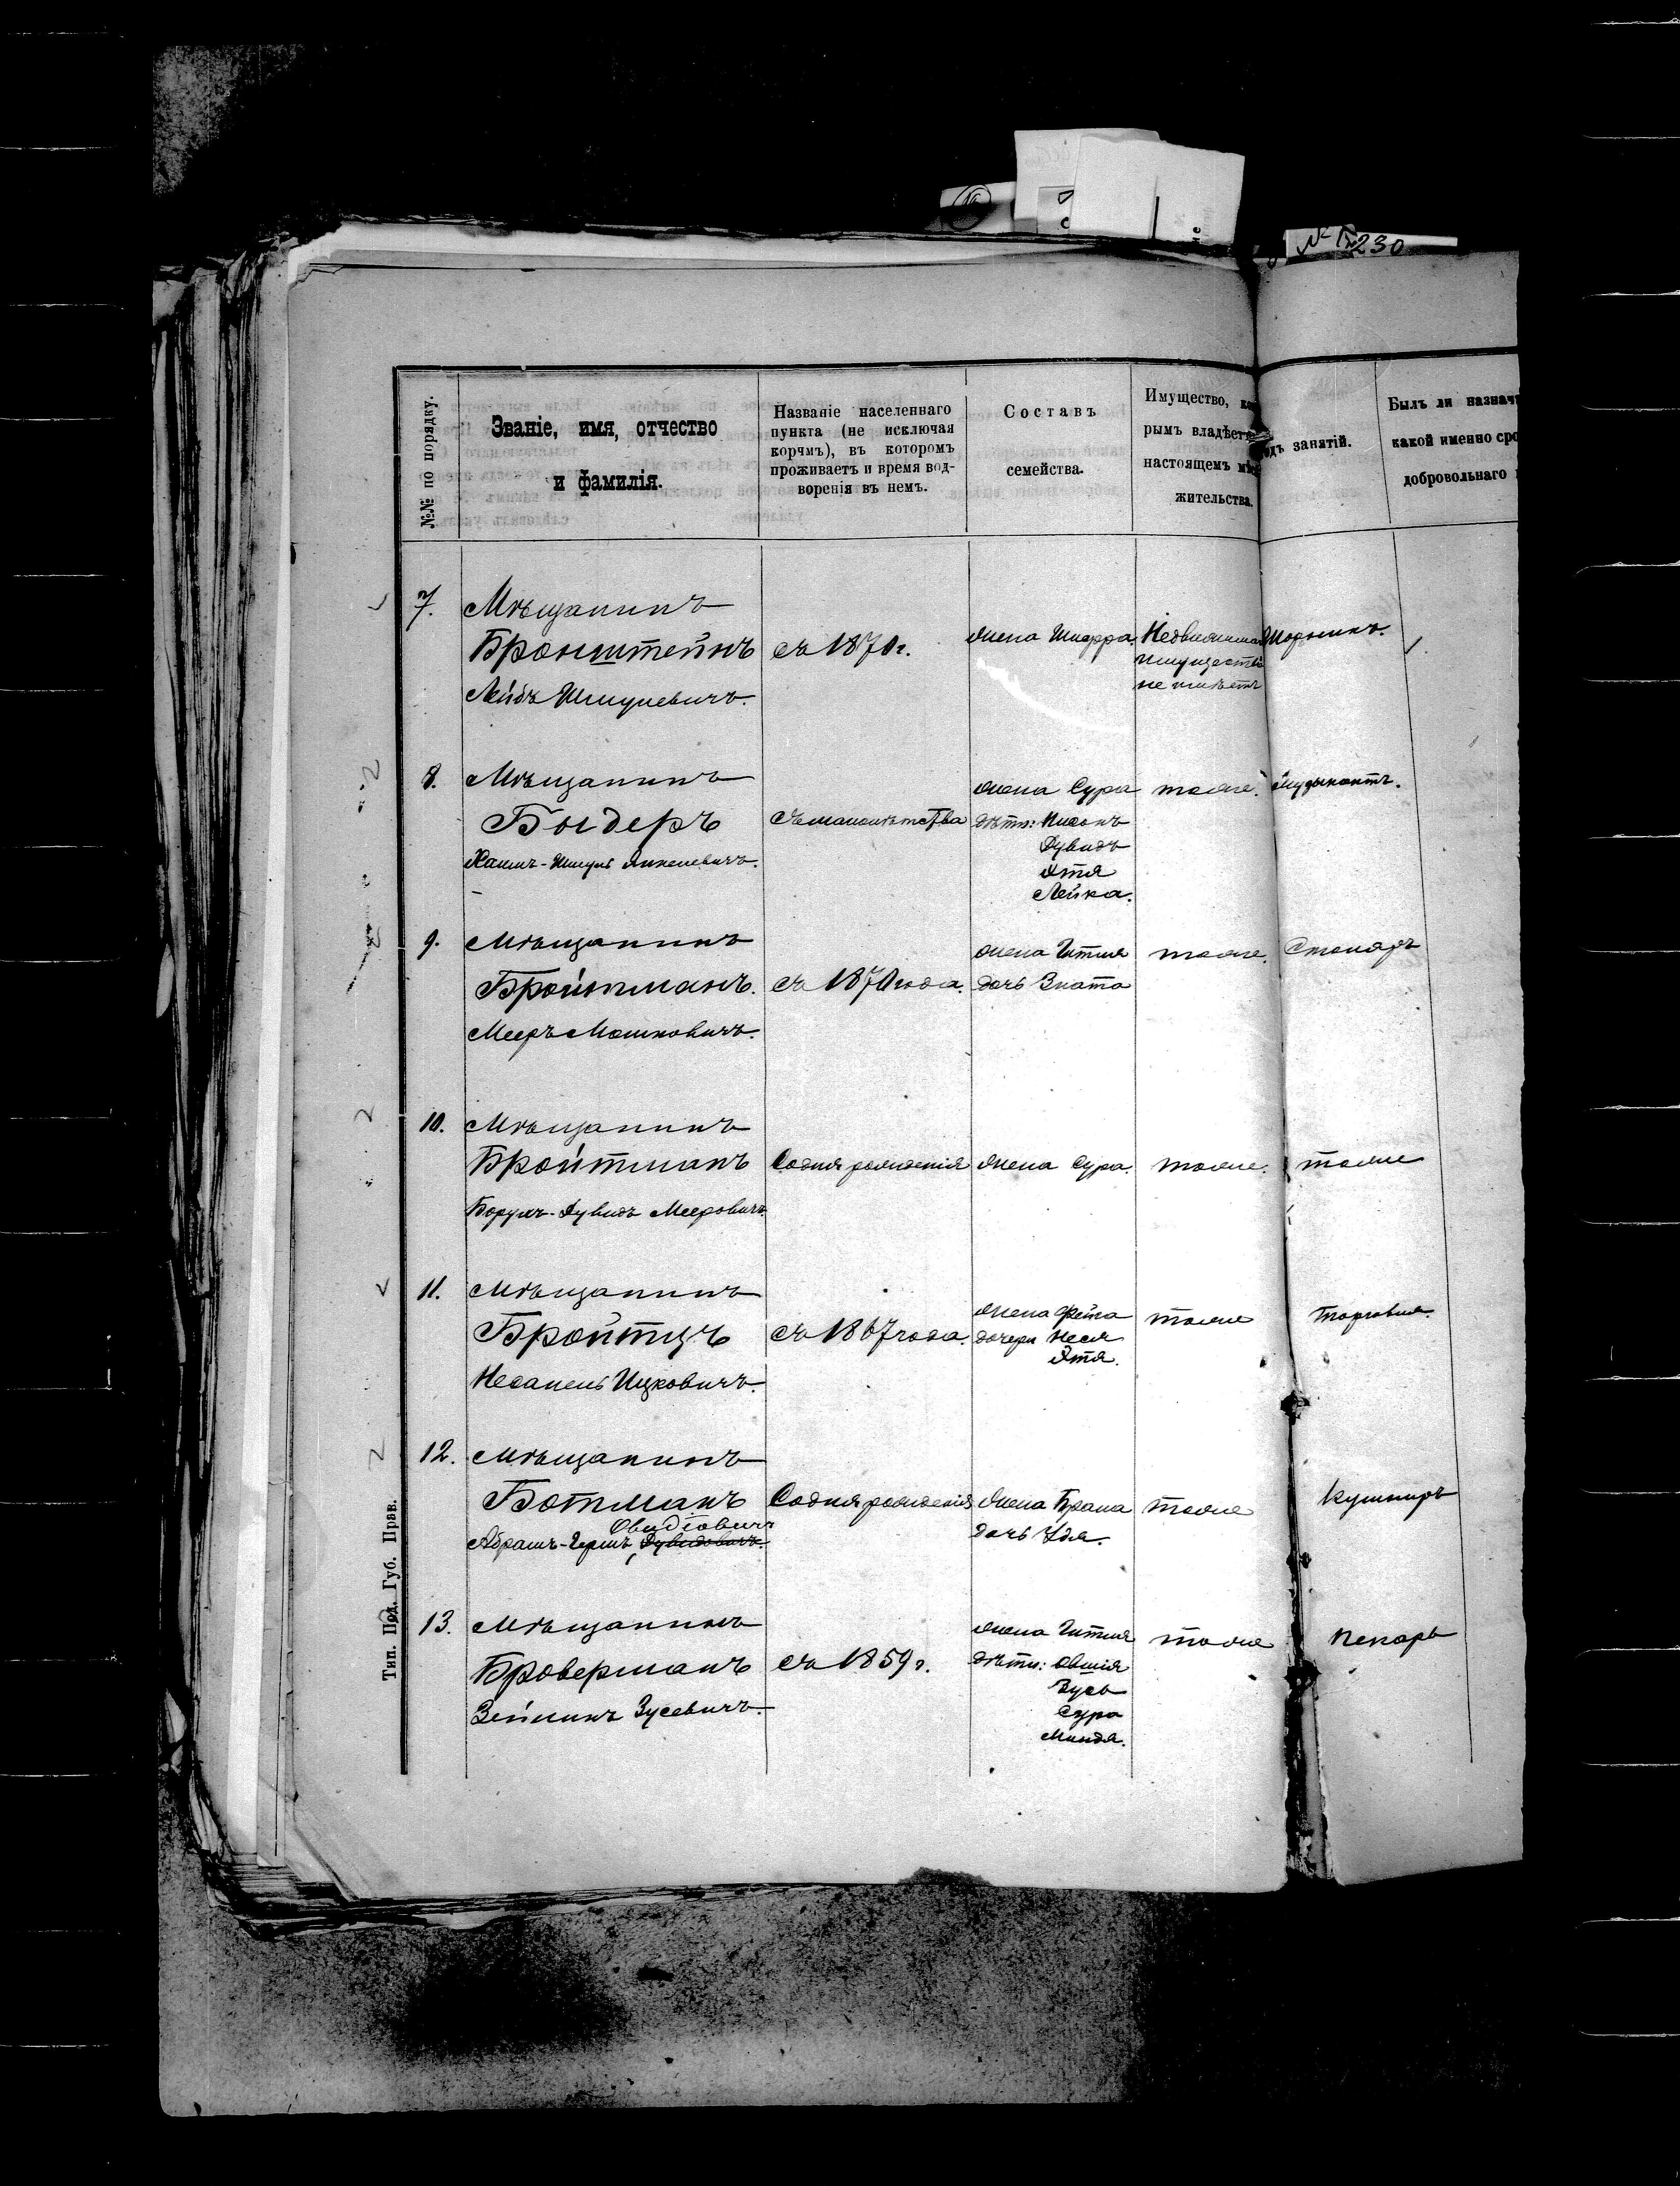 № 230
№№ по порядку.
Званіе, имя, отчество
и фамилія.
Названіе населеннаго
пункта (не исключая
корчмъ), въ которомъ
проживаетъ и время вод-
воренія въ немъ.
Составъ
семейства.
Имущество,
рымъ владѣетъ
настоящемъ
жительства.
занятій.
Былъ ли назнач
какой именно сро
добровольнаго
7.
Мѣщанинъ
Бронштейнъ
Лейбъ Шмулевичъ.
съ 1870 г.
жена Шифра.
Недвижимаго
имущества
не имѣетъ
Шорникъ.
8.
Мѣщанинъ
Быдеръ
Хаимъ-Шмуль Янкелевичъ.
съ малолѣтства
жена Сура
дѣти: Нисонъ
Дувидъ
Этя
Лейка.
тоже.
Музыкантъ.
9.
Мѣщанинъ
Бройтманъ.
Мееръ Мошковичъ.
съ 1870 года.
жена Гитля
дочь Злата
тоже.
Столяръ
10.
Мѣщанинъ
Бройтманъ
Борухъ-Дувидъ Мееровичъ.
Со дня рожденія
жена Сура.
тоже.
тоже
11.
Мѣщанинъ
Бройтцъ
Несанель Ицковичъ.
съ 1867 года.
жена Фейга
дочери Неся
Этя.
тоже
Торговля.
12.
Мѣщанинъ
Ботманъ
Овидіовичъ
Абрамъ-Гершъ Дувидовичъ.
Со дня рожденія
жена Брана
дочь Удя.
тоже
Кушниръ
13.
Мѣщанинъ
Броверманъ
Зейликъ Зусевичъ.
съ 1859 г.
жена Гитля
дѣти: Овшія
Зусь
Сура
Миндя.
тоже
пекарь
Тип. Под. Губ. Прав.